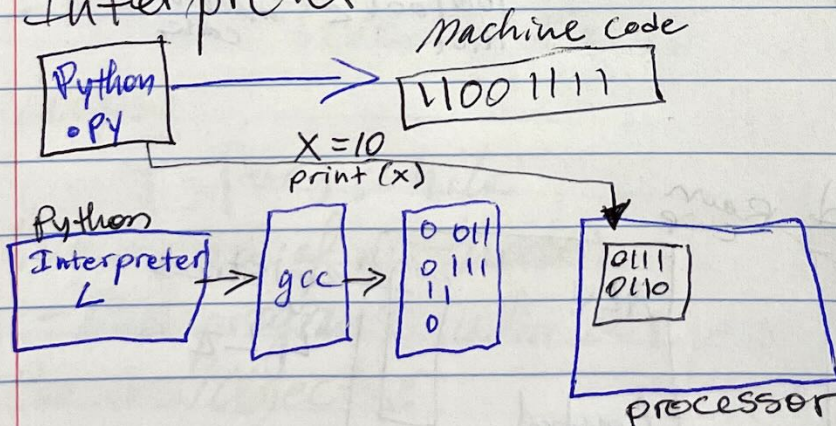 Machine code
Python
.PY
11001111
X = 10
print (x)
Python
Interpreter
gcc
0 011
0 111
11
0
0111
0110
processor